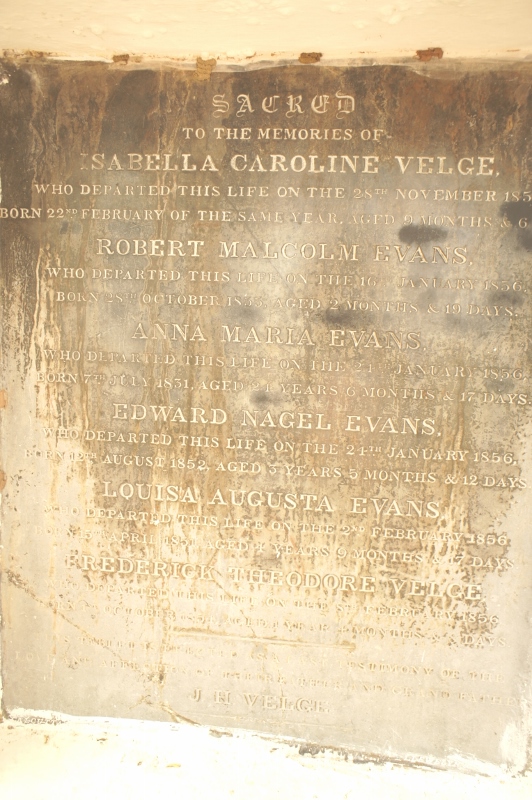 SACRED
TO THE MEMORIES OF
ISABELLA CAROLINE VELGE,
WHO DEPARTED THIS LIFE ON THE 28TH NOVEMBER 185
BORN 22ND FEBRUARY OF THE SAME YEAR, AGED 9 MONTHS & 6
ROBERT MALCOLM EVANS,
WHO DEPARTED THIS LIFE ON THE 16 JANUARY 1856,
BORN 28TH OCTOBER 1855, AGED 2 MONTHS & 19 DAYS.
ANNA MARIA EVANS,
WHO DEPARTED THIS LIFE ON THE 24TH JANUARY 1856,
BORN 7TH JULY 1831, AGED 24 YEARS 6 MONTHS & 17 DAYS.
EDWARD NAGEL EVANS,
WHO DEPARTED THIS LIFE ON THE 24TH JANUARY 1856,
BORN 12TH AUGUST 1852, AGED 3 YEARS 5 MONTHS & 12 DAYS
LOUISA AUGUSTA EVANS,
WHO DEPARTED THIS LIFE ON THE 2ND FEBRUARY 1856
APRIL AGED YEARS 9 MONTHS & DAYS
FREDERICK THEODORE VELGE
DEPARTED THIS LIFE ON THE FEBRUARY 1856
OCTOBER AGED YEAR MONTHS & DAYS
TESTIMONY OF THE
J H VELGE.